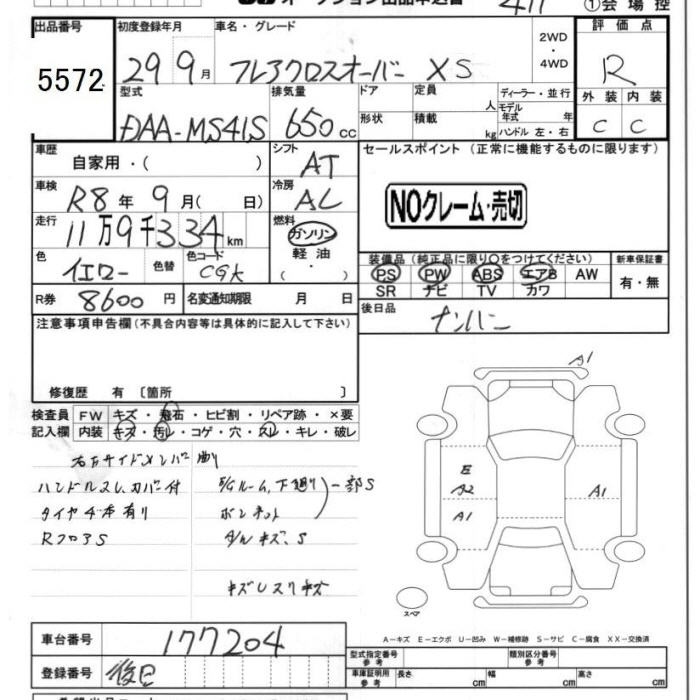 ①会場控
出品番号 初度登録年月 車名・グレード 2WD・4WD 評価点
5572 29 9月 フレアクロスオーバー XS R
型式 排気量 ドア 定員 人 ディーラー・並行 外装 内装
DAA-MS41S 650cc 形状 積載 kg モデル年式 年式 ハンドル 左・右 C C
車歴 自家用・( ) シフト AT セールスポイント (正常に機能するものに限ります)
車検 R8年 9月( 日) 冷房 AC
NOクレーム・売切
走行 11万9千334km 燃料 ガソリン 軽油 ( ・ )
色 イエロー 色替 色コード CGK
装備品(純正品に限り○をつけてください) 新車保証書
PS PW ABS エアB AW 有・無
SR ナビ TV カワ
R券 8600円 名変通知期限 月 日
後日品 ナンバー
注意事項申告欄(不具合内容等は具体的に記入して下さい)
修復歴 有 〔箇所 〕
検査員記入欄 FW キズ・飛石・ヒビ割・リペア跡・×要
内装 キズ・汚レ・コゲ・穴・スレ・キレ・破レ
右Fサイドメンバー曲り
ハンドルスレ、カバー付 E/Gルーム、下廻り 一部S
タイヤ4本有り ボンネット
RフロアS
キズ、S
キズ スリキズ
A1
E
A2 A1
A1
スペア
A-キズ E-エクボ U-凹み W-補修跡 S-サビ C-腐食 XX-交換済
車台番号 177204
登録番号 後日
型式指定番号 参考 類別区分番号 参考
車庫証明用 参考 長さ cm 幅 cm 高さ cm